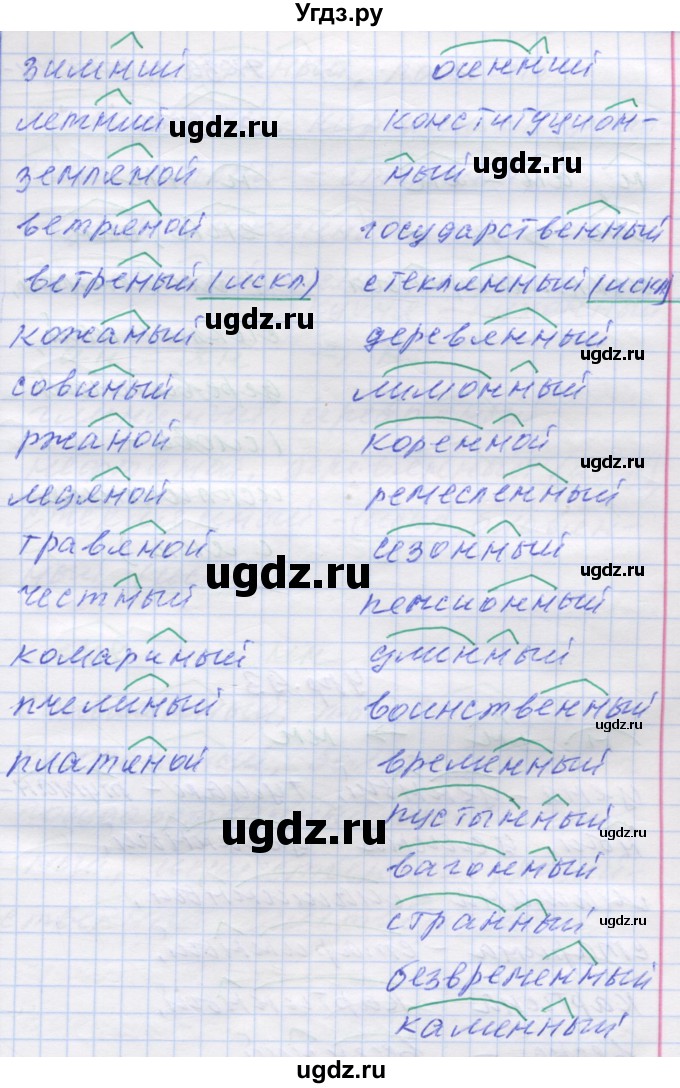 Угдз.ру
зимний
летний
земляной
ветряной
ветреный (искл.)
кожаный
совиный
ржаной
ледяной
травяной
честный
комариный
пчелиный
платяной
осенний
конституцион-
ный
государственный
стеклянный (искл)
деревянный
лимонный
коренной
ремесленный
сезонный
пенсионный
длинный
воинственный
временный
пустынный
вагонный
странный
безвременный
каменный
ugdz.ru
ugdz.ru
ugdz.ru
ugdz.ru
ugdz.ru
ugdz.ru
ugdz.ru
ugdz.ru
ugdz.ru
ugdz.ru
ugdz.ru
ugdz.ru
ugdz.ru
ugdz.ru